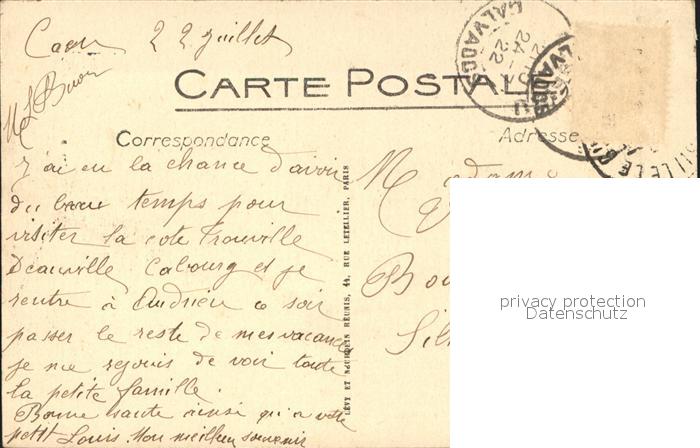 Caen 22 juillet
CALVADOS
24-
22
CARTE POSTALE
CALVADOS
Correspondance
Adresse
J'ai eu la chance d'avoir
du beau temps pour
visiter la cote Trouville
Deauville Cabourg et je
rentre à Audrieu ce soir
passer le reste de mes vacances
je me rejouis de voir toute
la petite famille.
Bonne sante ainsi qu'a votre
petit Louis Mon meilleur souvenir
LÉVY ET NEURDEIN RÉUNIS, 44, RUE LETELLIER, PARIS
Madame
privacy protection
Datenschutz